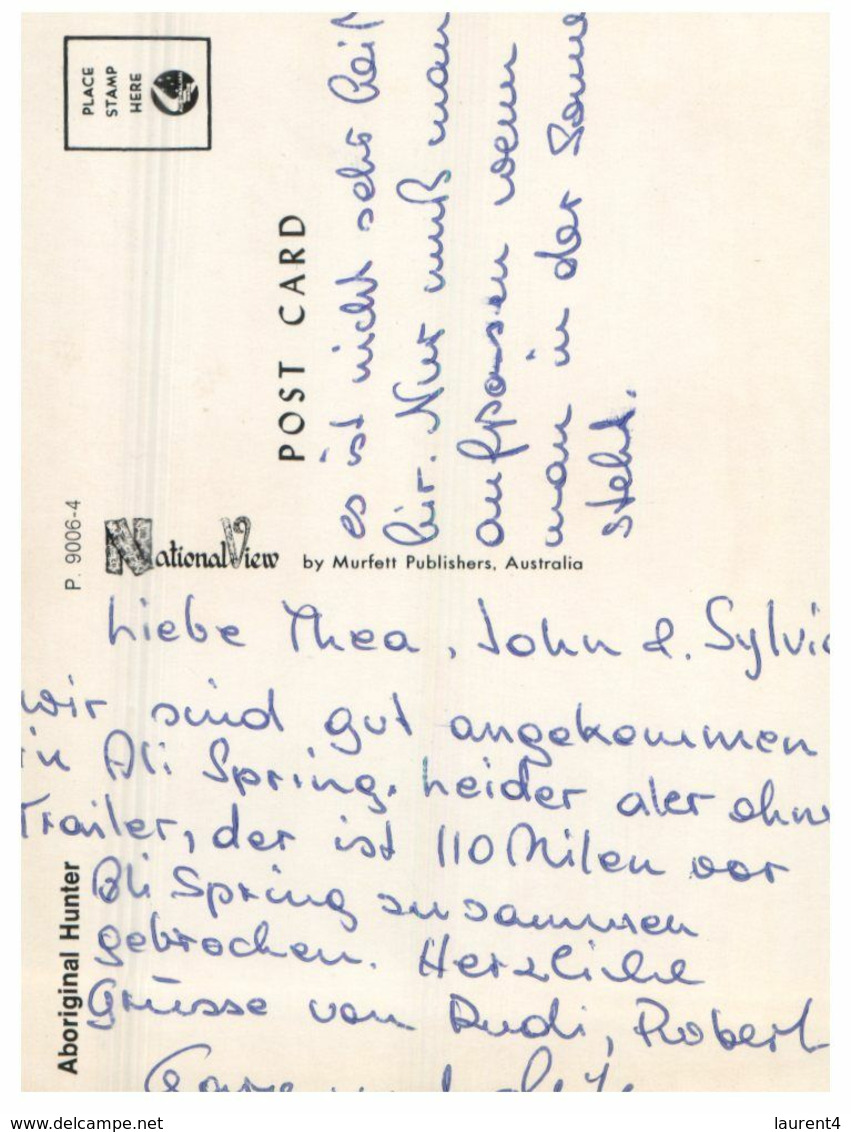 PLACE
STAMP
HERE
POST CARD
P. 9006-4
National View
by Murfett Publishers, Australia
Aboriginal Hunter
Liebe Thea, John &. Sylvia
wir sind gut angekommen
in Ali Spring. Leider aber ohne
Trailer, der ist 110 Milen vor
Ali Spring zusammen
gebrochen. Herzliche
Grüsse von Rudi, Robert
und
es ist nicht sehr heiß
hir. Nur muß man
aufpassen wenn
man in der Sonne
steht.
www.delcampe.net
laurent4